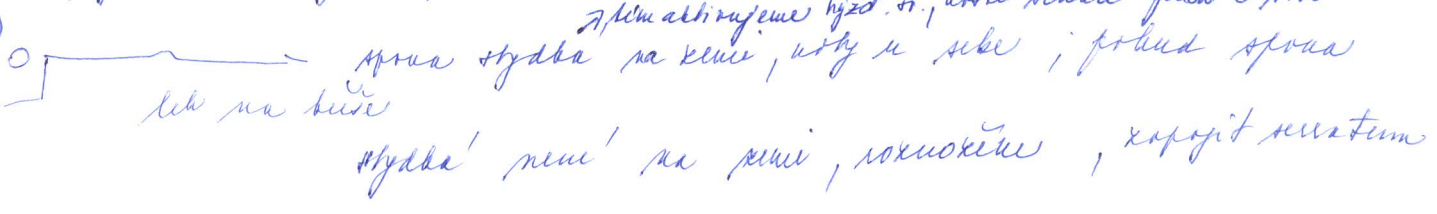 tím aktivujeme hýžď. sv.,
spona stydká na zemi, nohy u sebe ; pokud spona
leh na břiše
stydká není na zemi, roznožíme, zapojit serratum